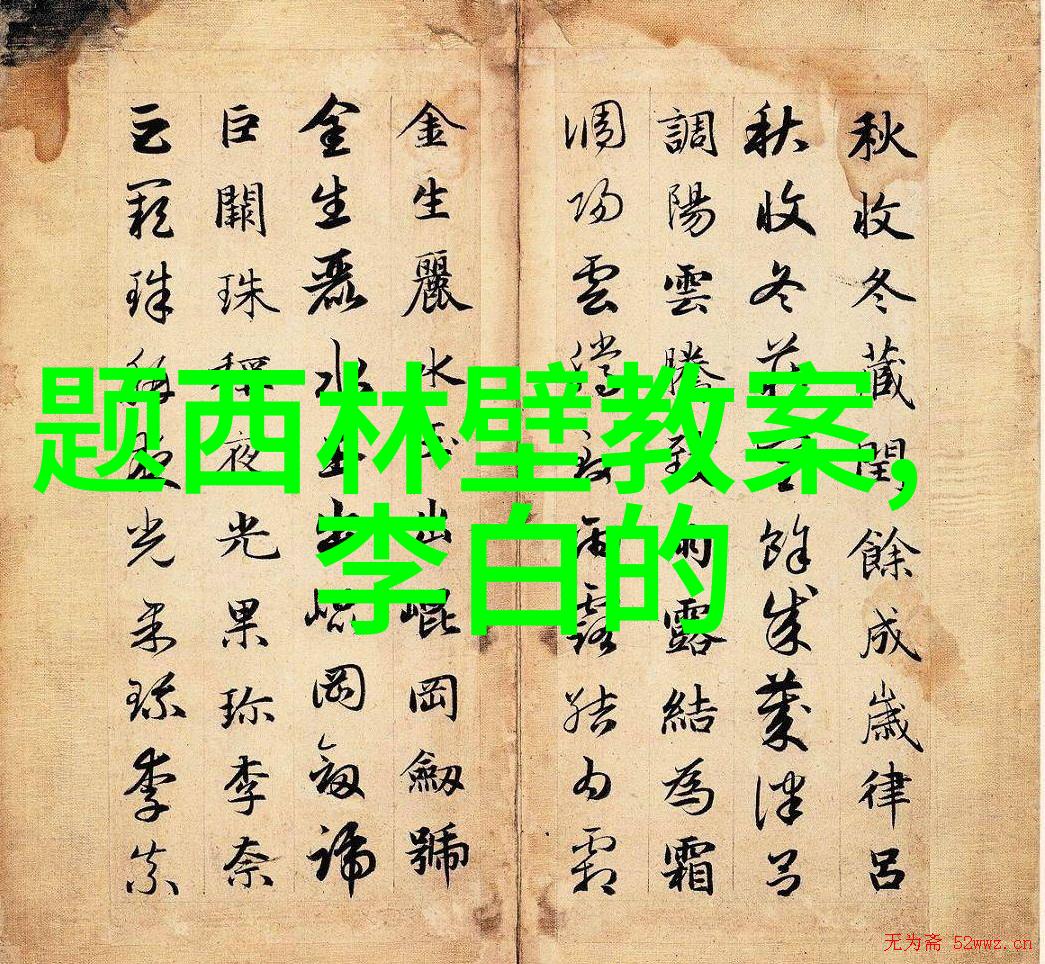 秋收冬藏閏餘成歲律呂
秋收冬藏閏餘成歲律呂
調陽雲騰致雨露結為霜
調陽雲騰致雨露結為霜
金生麗水玉出崑岡劒號
金生麗水玉出崑岡劒號
巨闕珠稱夜光果珍李柰
巨闕珠稱夜光果珍李柰
题西林壁教案,
李白的
无为斋 52wwz.cn